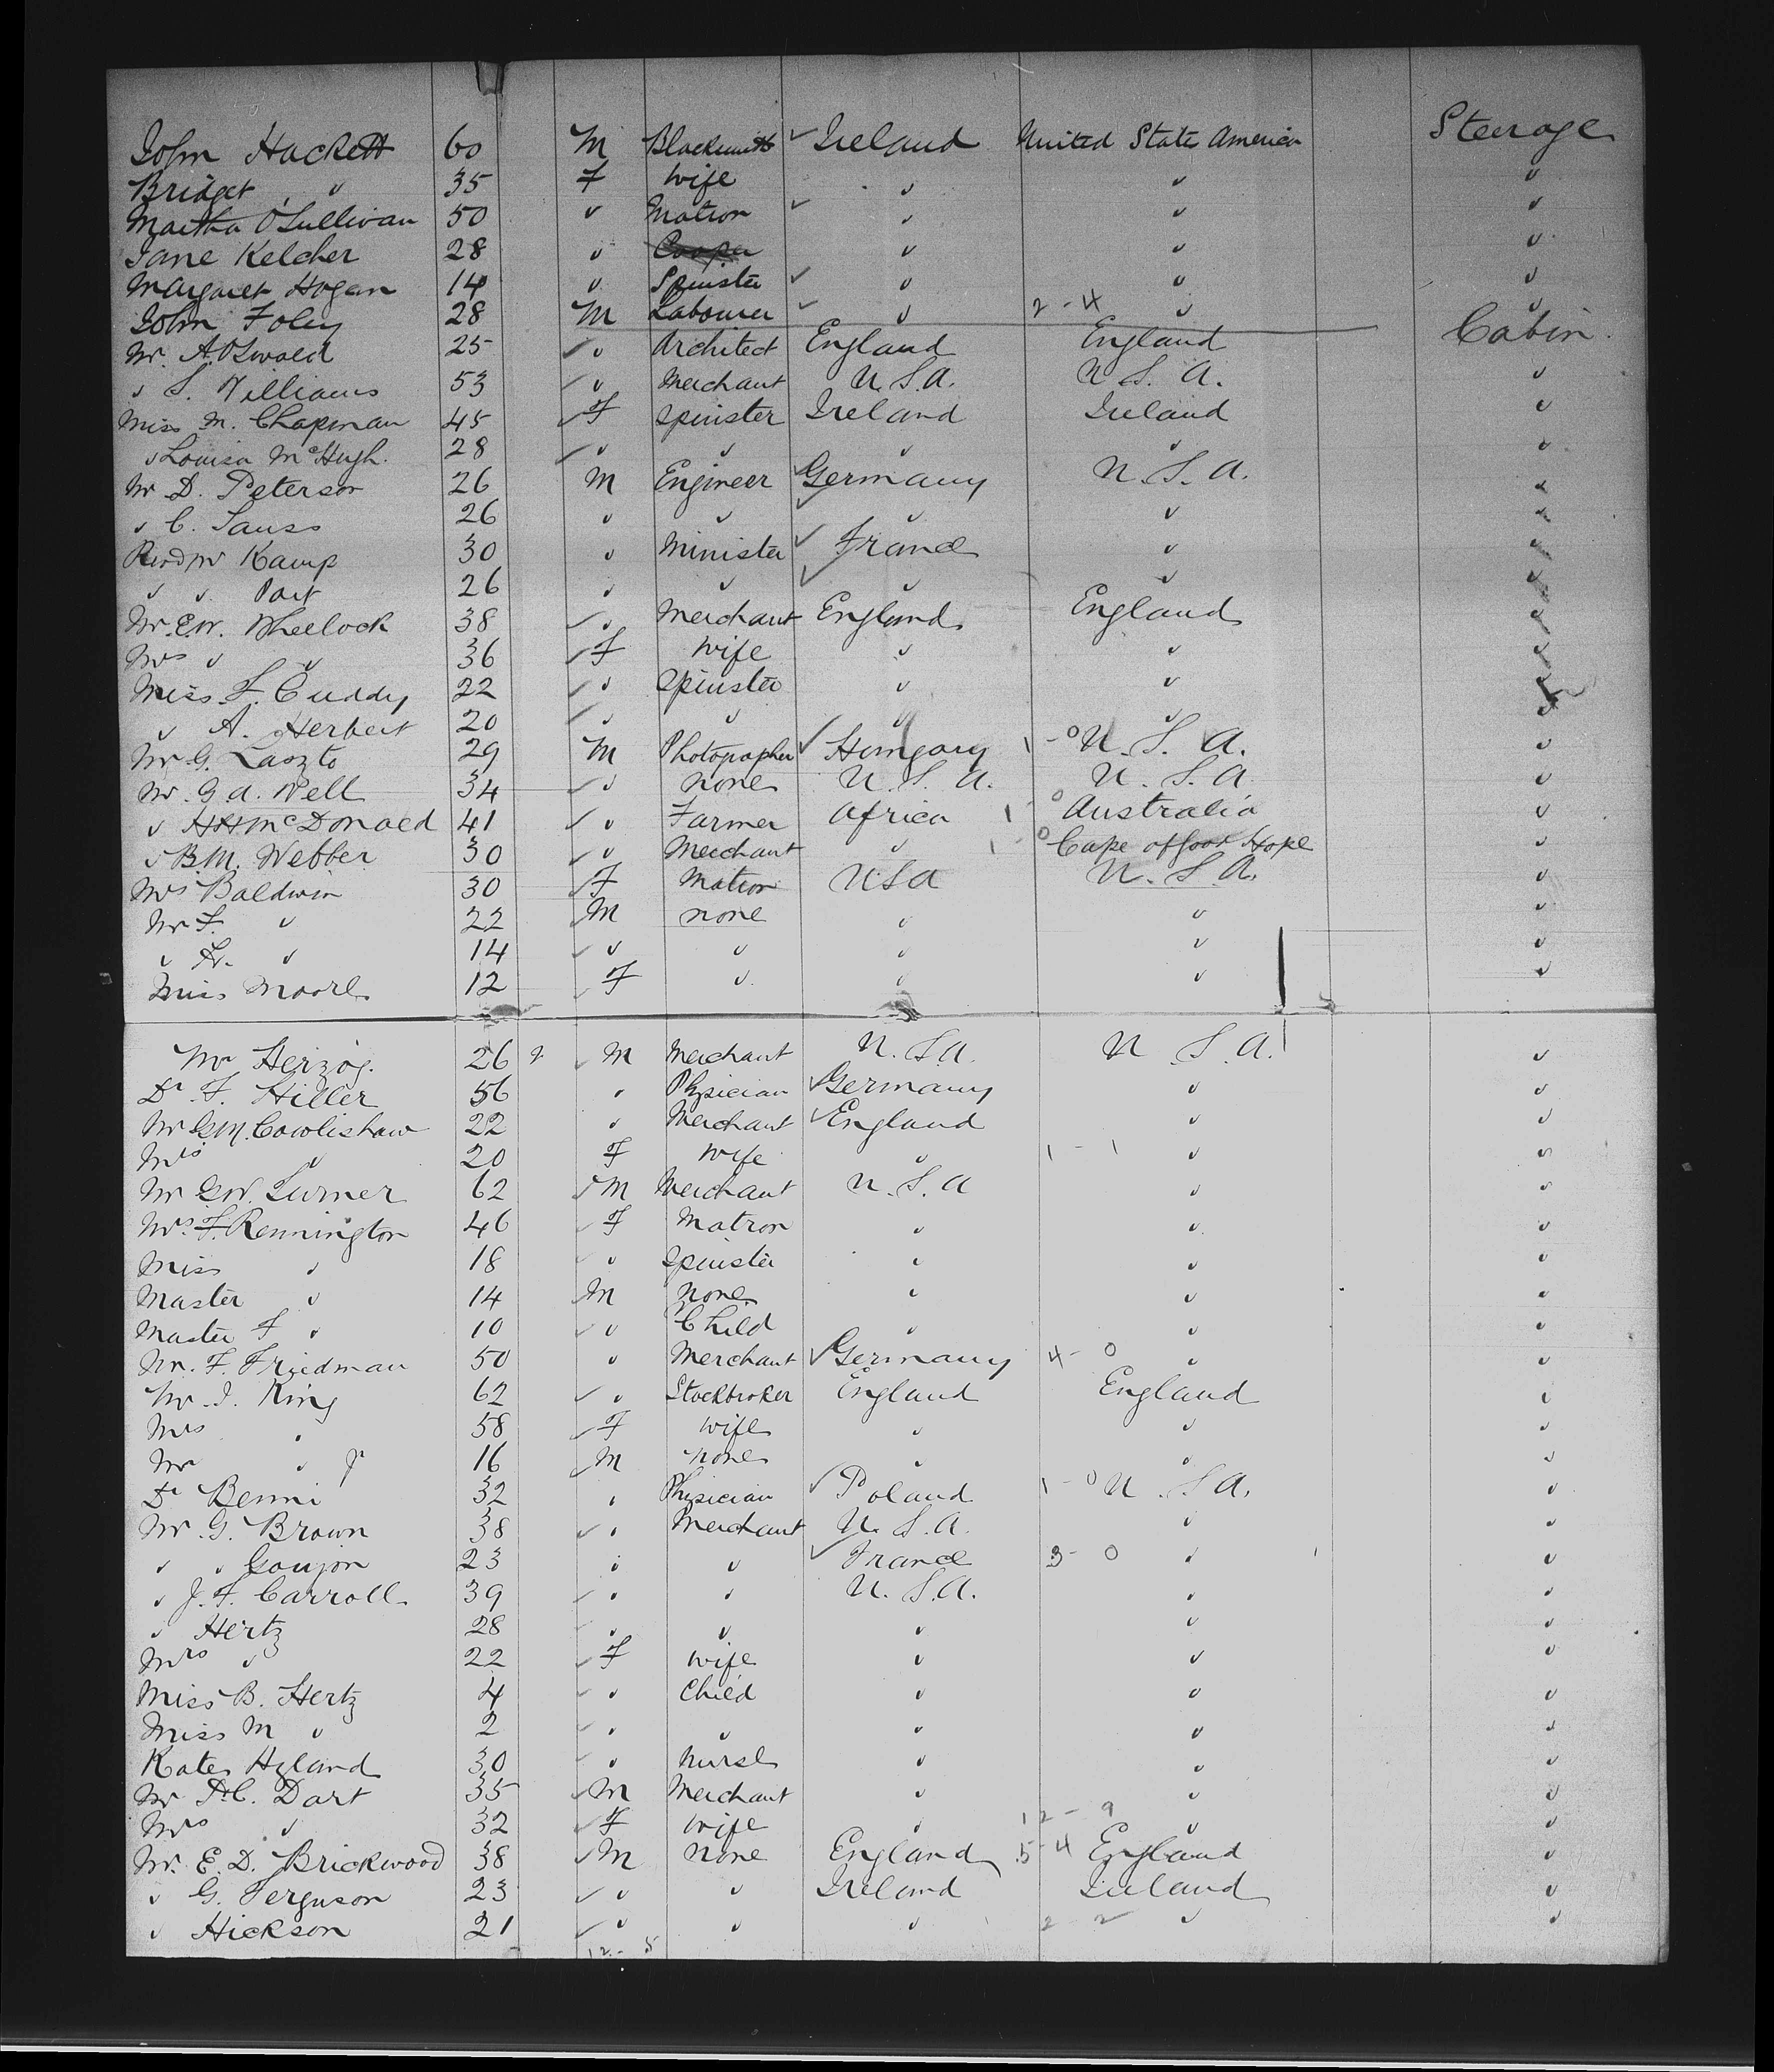 John Hackett 60 M Blacksmith ✓ Ireland United State America Steerage
Bridget " 35 F Wife " " "
Martha O'Sullivan 50 " Matron ✓ " " "
Jane Kelcher 28 " Cooper " " "
Margaret Hogan 14 " Spinster ✓ " " "
John Foley 28 M Labourer ✓ " 2-4 " "
Mr. A. Oswald 25 ✓ " Architect England England Cabin.
" S. Williams 53 ✓ " Merchant U.S.A. U.S.A. "
Miss M. Chapman 45 ✓ F Spinster Ireland Ireland "
" Louisa McHugh. 28 ✓ " " " " "
Mr D. Peterson 26 M Engineer ✓ Germany U.S.A. "
" C. Sauss 26 " " ✓ " " "
Revd Mr Kamp 30 " Minister ✓ France " "
" " Part 26 " " ✓ " " "
Mr. E.W. Wheelock 38 ✓ " Merchant England England "
Mrs " " 36 ✓ F Wife " " "
Miss F. Cuddy 22 ✓ " Spinster " " "
" A. Herbert 20 ✓ " " " " "
Mr G. Laszto 29 M Photographer ✓ Hungary 1-0 U.S.A. "
Mr. G.A. Well 34 ✓ " none U.S.A. U.S.A "
" HH McDonald 41 ✓ " Farmer Africa 1 0 Australia "
" B.M. Webber 30 ✓ " Merchant " 1 0 Cape of Good Hope "
Mrs Baldwin 30 ✓ F Matron USA U.S.A. "
Mr F. " 22 ✓ M none " " "
" H. " 14 ✓ " " " " "
Miss Moore 12 ✓ F " " " "
Mr Herzog. 26 ✓ M Merchant U.S.A. U S.A. "
Dr. F. Hiller 56 " Physician ✓ Germany " "
Mr G.M. Cowlishaw 22 " Merchant ✓ England " "
Mrs " 20 F Wife " 1-1 " "
Mr G.W. Turner 62 ✓ M Merchant U.S.A " "
Mrs. F. Rennington 46 ✓ F Matron " " "
Miss " 18 ✓ " Spinster " " "
Master " 14 ✓ M none " " "
Master F " 10 ✓ " Child " " "
Mr. F. Friedman 50 " Merchant ✓ Germany 4-0 " "
Mr. J. King 62 ✓ " Stockbroker England England "
Mrs " 58 ✓ F Wife " " "
Mr " Jr 16 ✓ M none " " "
Dr Benni 32 " Physician ✓ Poland 1-0 U.S.A. "
Mr. G. Brown 38 ✓ " Merchant U.S.A. " "
" " Goujon 23 " " ✓ France 3-0 " "
" J.F. Carroll 39 ✓ " " U.S.A. " "
" Hertz 28 ✓ " " " " "
Mrs " 22 ✓ F Wife " " "
Miss B. Hertz 4 ✓ " Child " " "
Miss M " 2 ✓ " " " " "
Kate Hyland 30 ✓ " Nurse " " "
Mr. A.C. Dart 35 ✓ M Merchant " " "
Mrs " 32 ✓ F Wife " 12-9 " "
Mr. E.D. Brickwood 38 ✓ M none England 5-4 England "
" G. Ferguson 23 ✓ " " Ireland Ireland "
" Hickson 21 ✓ " " " 2-2 " "
12-5